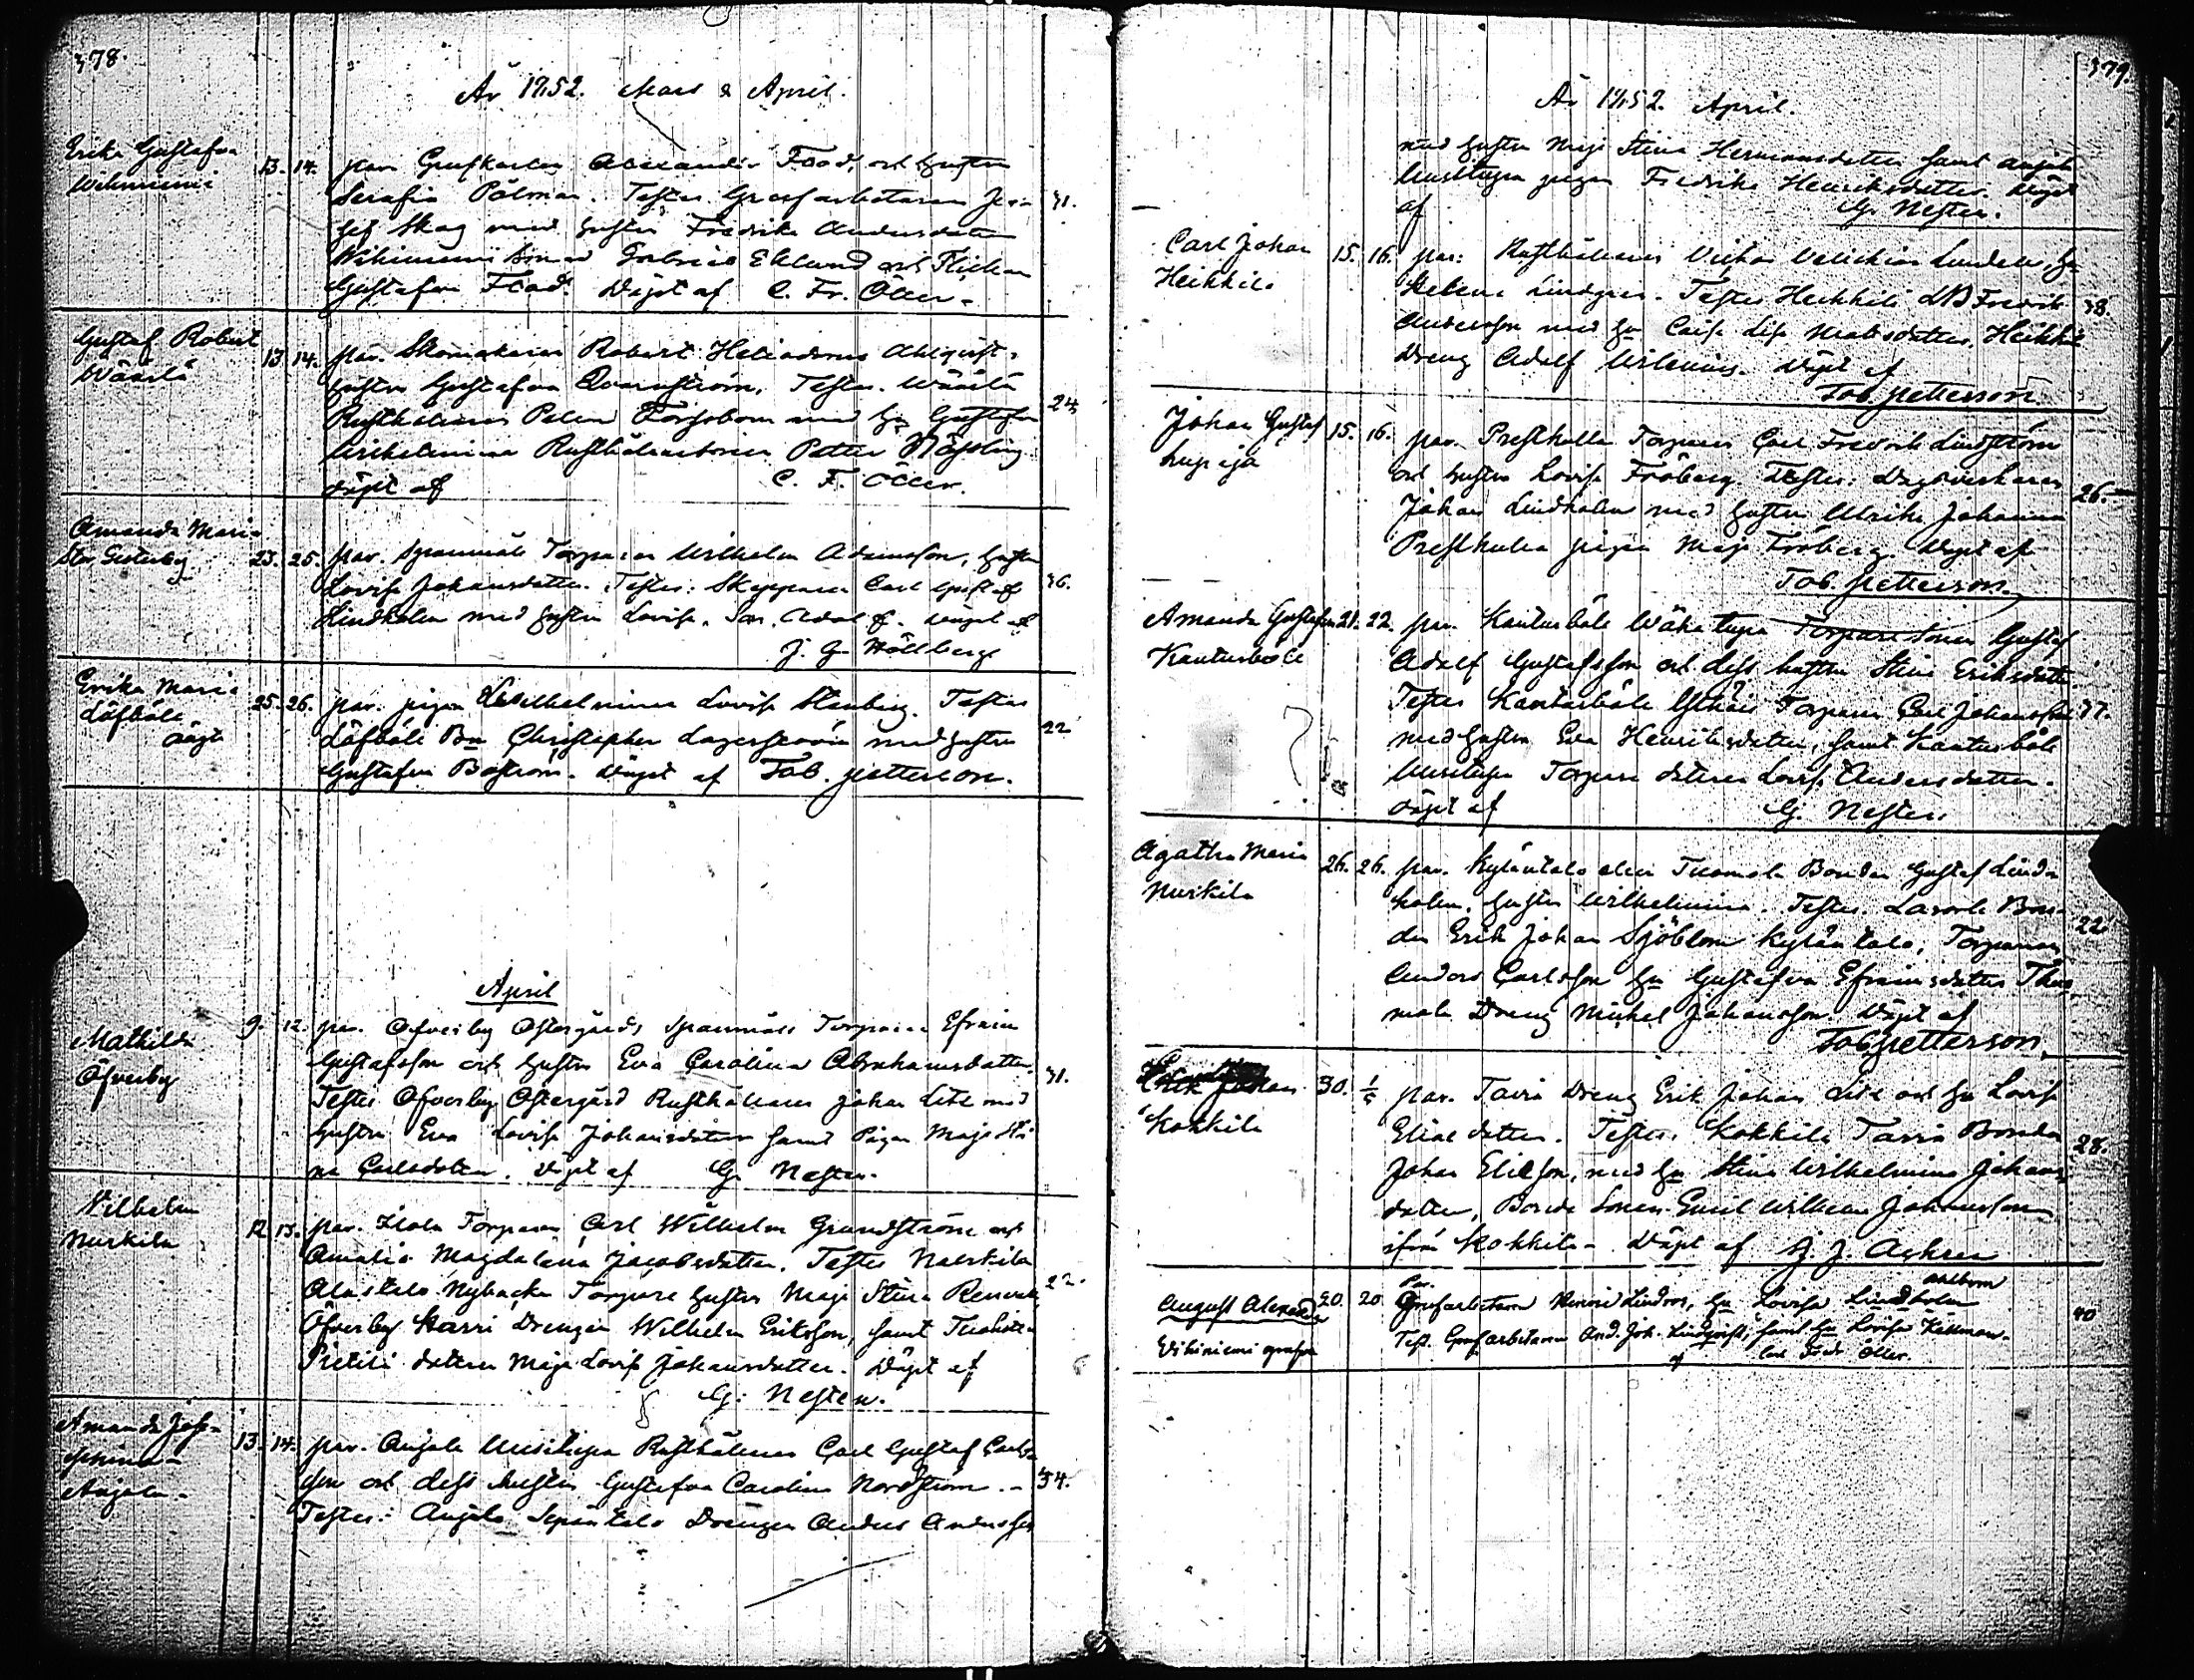 378.
År 1852. Mars & April.
Erika Gustafva
Wihiniemi
13. 14. par. Grufkarlen Alexander Flod, och hustrun
Serafia Pålman. Testes Grufarbetaren Jo-
sef Skog med hustru Fredrika Andersdotter
Wihiniemi Gabriel Eklund och Flickan
Gustafva Flod. Döpt af C. Fr. Öller.
31.
Gustaf Robert
Wäästä
13. 14. par. Skomakaren Robert Heliodorus Ahlqvist,
hustru Gustafva Qvarnström. Testes. Wäästä
Rusthållaren Forssbom med Hu Gustafva
Wilhelmina Rusthållaresonen Petter
döpt af C. F. Öller.
24
Amanda Maria
Stor Gisterby
23. 25. par. Spannmåls Torparen Wilhelm Adamsson, hustru
Lovisa Johansdotter. Testes: Skepparen Carl Gustaf
Lindholm med hustru Lovisa. Son. Adolf. döpt af
J. G. Hällberg
36.
Erika Maria
Löfböle
25. 26. par. pigan Wilhelmina Lovisa Stenberg. Testes
Löfböle Bn Christopher Lagerström med hustru
Gustafva Boström. Döpt af Tob. Petterson.
22
April
Mathilda
Öfverby
9. 12. par. Öfverby Östergårds Spannmåls Torparen Efraim
Gustafsson och hustru Eva Carolina Abrahamsdotter
Testes Öfverby Östergård Rusthållaren Johan Lite med
hustru Eva Lovisa Johansdotter samt Pigan Maja Sti
na Carlsdotter. döpt af G. Nesten.
31.
Wilhelm
Nurkila
12 13. par. Torparen Carl Wilhelm Grundström och
Amalia Magdalena Jacobsdotter. Testes Nurkila
Alastalo Nybacka Torpare hustru Maja Stina
Öfverby Harri Drengen Wilhelm Eriksson, samt
dottren Maja Lovisa Johansdotter. Döpt af
G. Nesten.
22.
Amanda Jose-
phina
Anjala
13. 14. par. Anjala Uusitupa Rusthållaren Carl Gustaf Carls-
son och dess hustru Gustafva Carolina Nordström.
Testes: Anjala Sepäntalo Drengen Anders Andersson
34.
379.
År 1852. April.
med hustru Maja Stina Hermansdotter samt Anjala
Uusitupa pigan Fredrika Henriksdotter. döpt
af G. Nesten.
Carl Johan
Heikkilä
15. 16. par: Rusthållaren Lindell, Hu
Helena Lindgren. Testes Heikkilä Fredrik
Andersson med Hu Caisa Lisa Mattsdotter, Heikkilä
Dreng Adolf Wilenius. Döpt af
Tob. Petterson
38.
Johan Gustaf
Lupaja
15. 16. par. Prestkulla Torparen Carl Fredrik Lindström
och hustru Lovisa Fröberg. Testes: Dagsverkaren
Johan Lindholm med hustru Ulrika Johanna
Prestkulla pigan Maja Fröberg. Döpt af
Tob. Petterson.
26.
Amanda Gustafva
Kanturböle
21. 22. par. Kanturböle Wähätupa Torparesonen Gustaf
Adolf Gustafsson och dess hustru Stina Eriksdotter
Testes Kanturböle Torparen Carl Johansson
med hustru Eva Henriksdotter, samt Kanturböle
Uusitupa Torpare dottren Lovisa Andersdotter.
döpt af G. Nesten.
37.
Agatha Maria
Nurkila
26. 26. par. Kyläntalo eller Tuomola Bonden Gustaf Lind-
holm, hustru Wilhelmina. Testes. Bon-
den Erik Johan Sjöblom Kyläntalo, Torparen
Anders Carlsson Hu Gustafva Efraimsdotter Tuo-
mola Dreng Mickel Johansson. Döpt af
Tob Petterson
22
Erik Johan
Kokkila
30. 1/5 par. Tavia Dreng Erik Johan Lite och Hu Lovisa
Eliaedotter. Testes. Kokkila Tavia Bonden
Johan Eliesson, med Hu Stina Wilhelmina Johans
dotter, Bonde Sonen Emil Wilhelm Johansson
ifrån Kokkila. Döpt af A. J. Achren
28.
August Alexander
Vihiniemi grufva
20. 20. Par. Grufarbetaren Lindroos, Hu Lovisa Lindholm Ahlbom
Test. Grufarbetaren And. Joh. Lindqvist, samt Hu Lovisa Kellman.
af Carl Fredr. Öller.
40